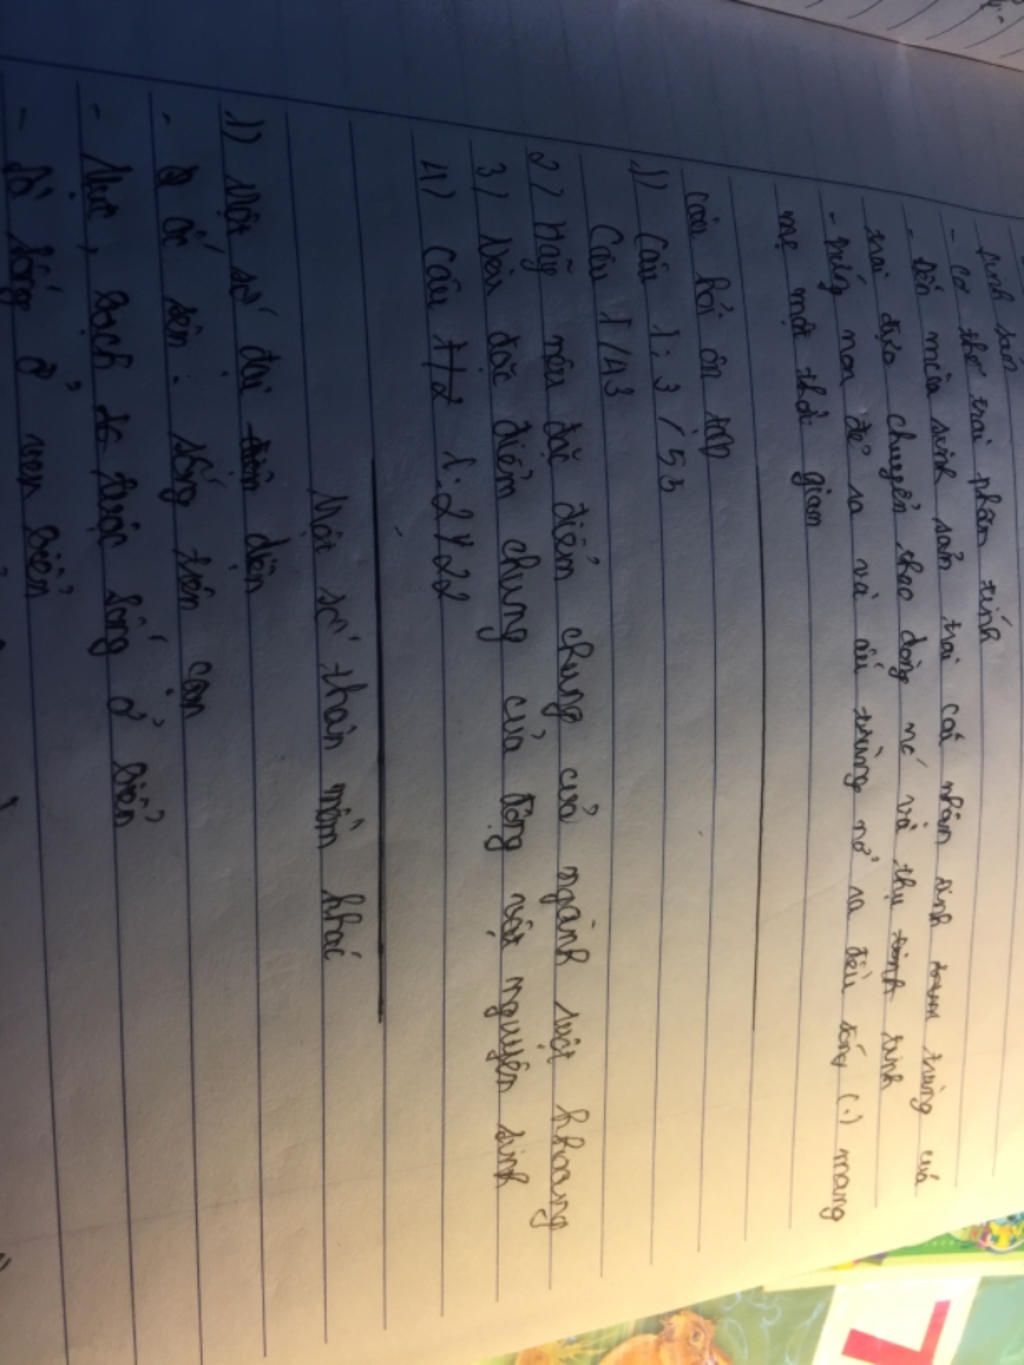 sinh sản
- Cơ thể trai phân tính
- Đến mùa sinh sản trai cái nhận tinh trùng của
trai đực chuyển theo dòng nước và thụ tinh
- trứng non đẻ ra và ấu trùng nở ra đều sống (.) mang
mẹ một thời gian
Câu hỏi ôn tập
1) Câu 1; 3 / 55
Câu 1/43
2) Hãy nêu đặc điểm chung của ngành ruột khoang
3) Nêu đặc điểm chung của động vật nguyên sinh
4) Câu 1; 2 / 22
Một số thân mềm khác
1) Một số đại diện
- ốc sên: sống trên cạn
- Mực, bạch tuộc sống ở biển
- Sò sống ở ven biển
L